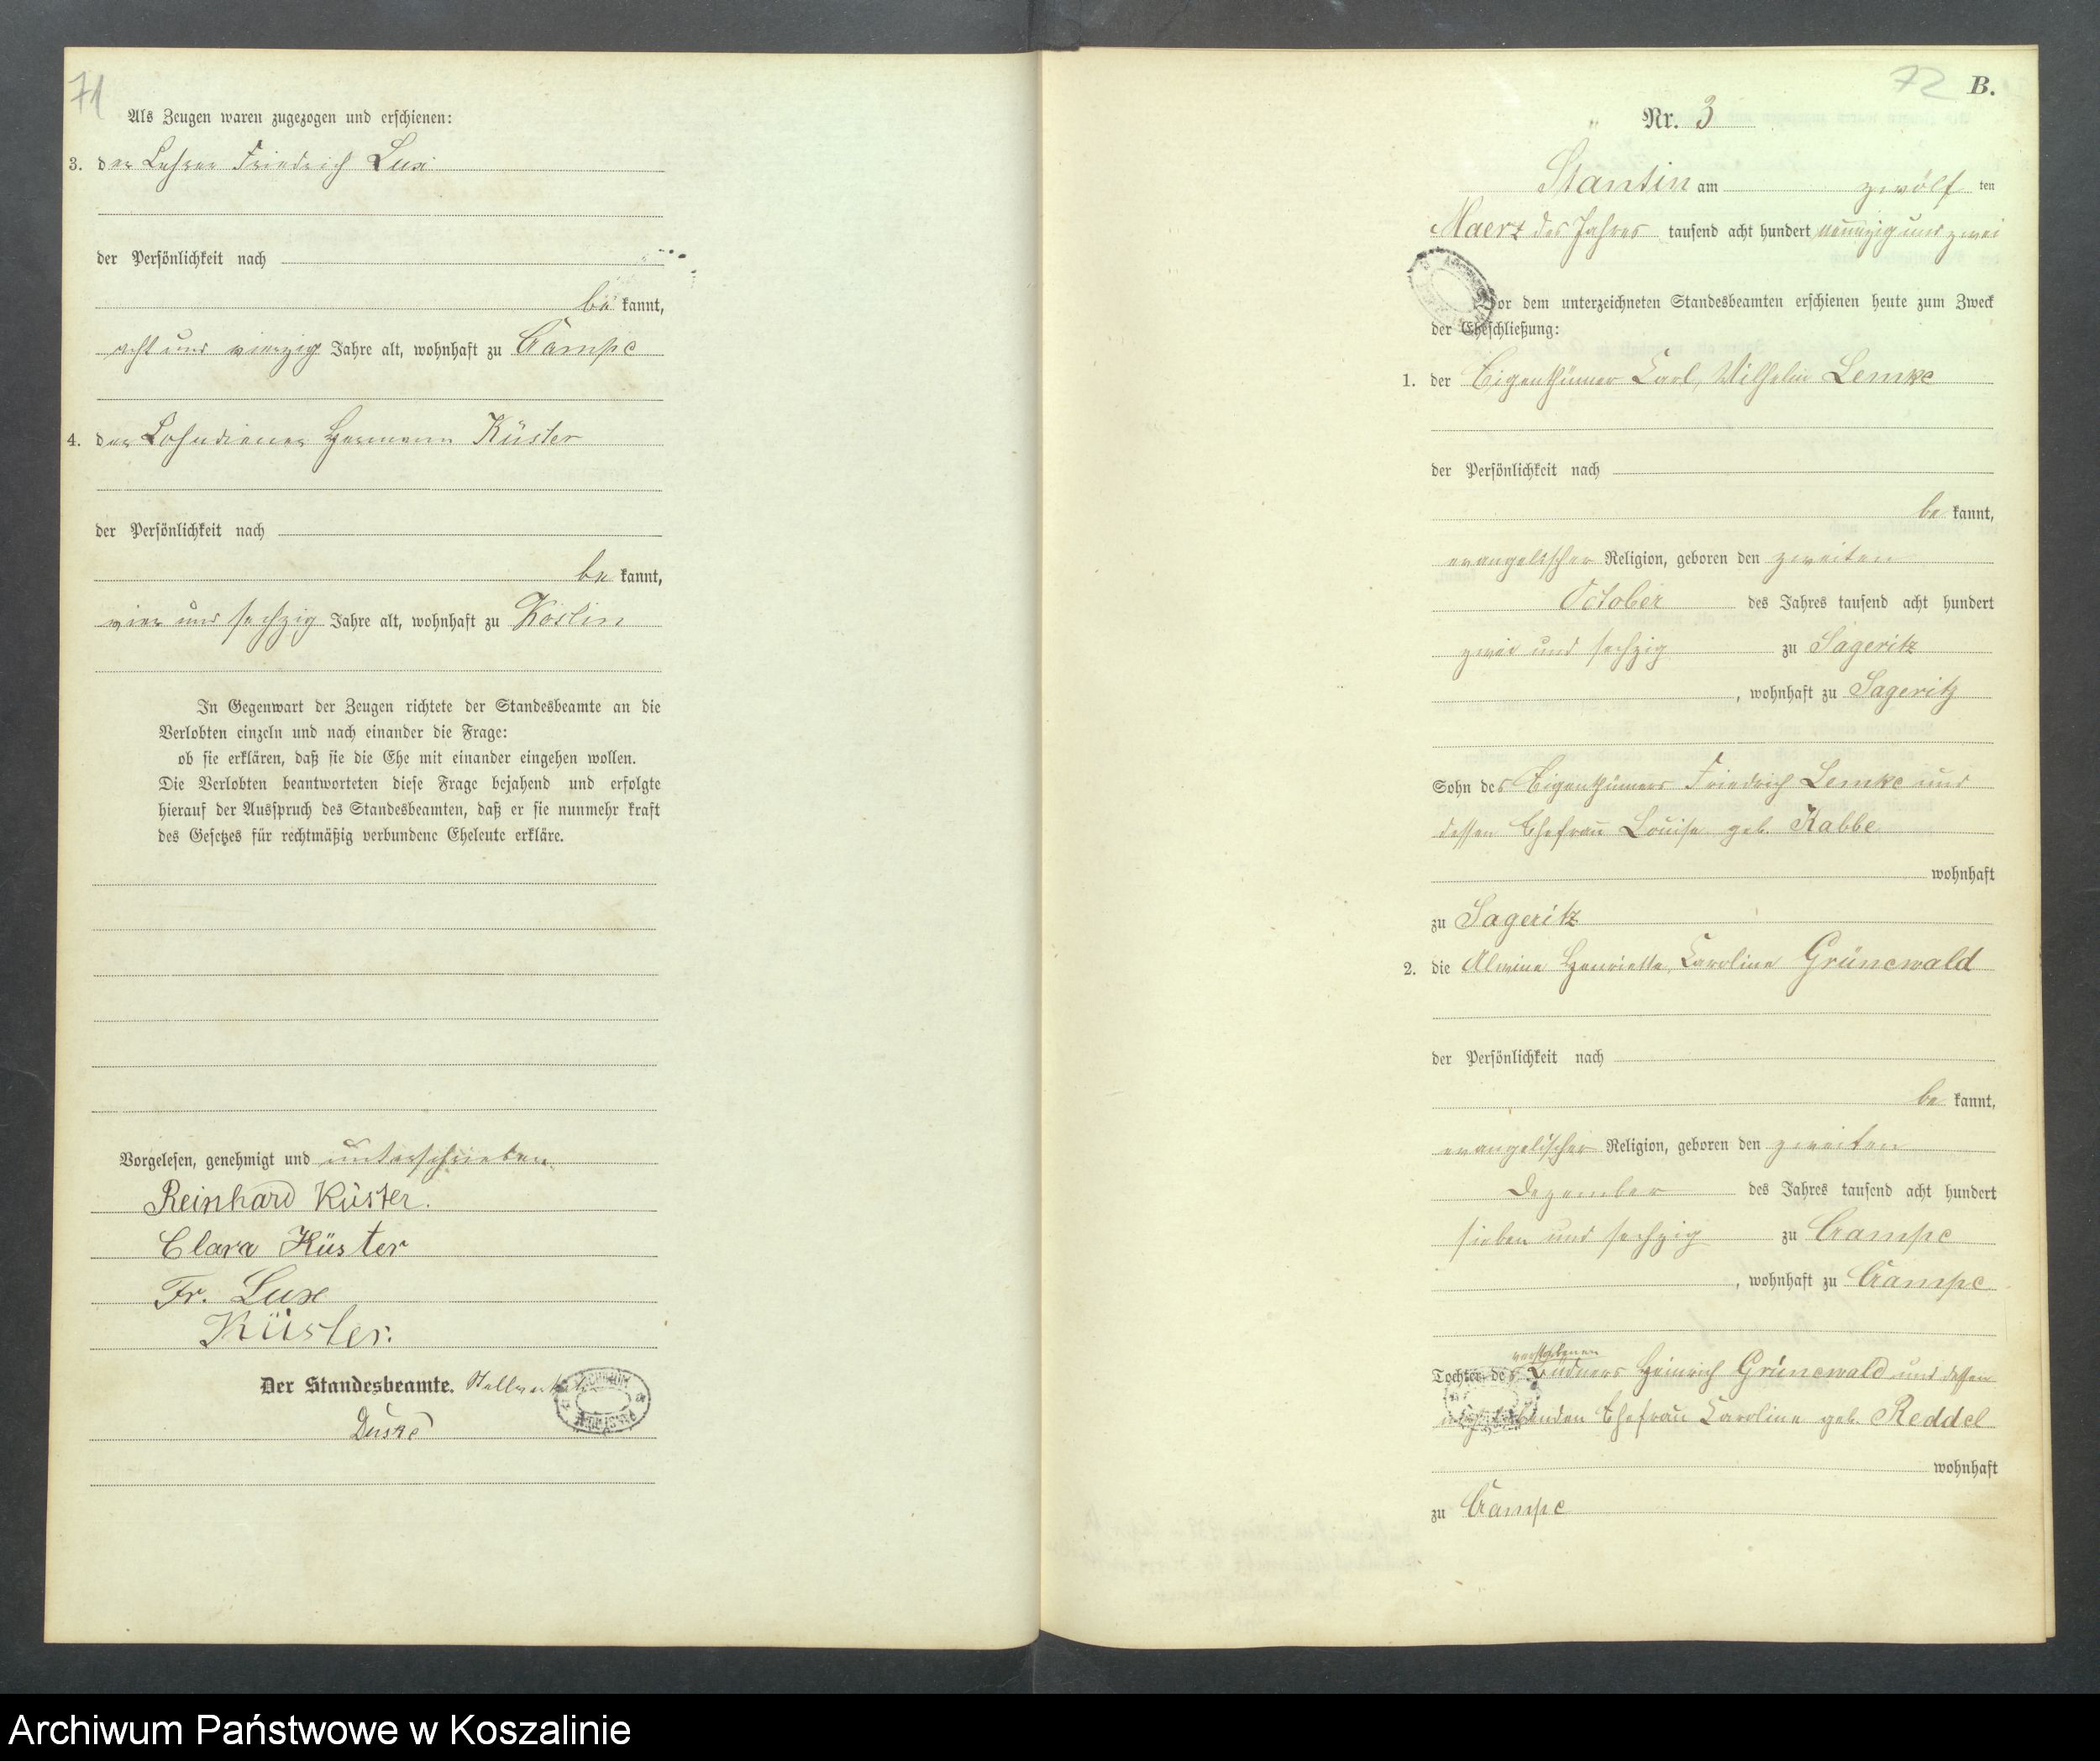 71
Als Zeugen waren zugezogen und erschienen:
3. der Lehrer Friedrich Lux
der Persönlichkeit nach
be kannt,
acht und vierzig Jahre alt, wohnhaft zu Crampe
4. der Lohndiener Hermann Küster
der Persönlichkeit nach
be kannt,
vier und sechzig Jahre alt, wohnhaft zu Köslin
In Gegenwart der Zeugen richtete der Standesbeamte an die
Verlobten einzeln und nach einander die Frage:
ob sie erklären, daß sie die Ehe mit einander eingehen wollen.
Die Verlobten beantworteten diese Frage bejahend und erfolgte
hierauf der Ausspruch des Standesbeamten, daß er sie nunmehr kraft
des Gesetzes für rechtmäßig verbundene Eheleute erkläre.
Vorgelesen, genehmigt und unterschrieben.
Reinhard Küster.
Clara Küster
Fr. Lux
Küster.
Der Standesbeamte.
72 B.
Nr. 3
Stantin am zwölf ten
Maerz des Jahres tausend acht hundert neunzig und zwei
Vor dem unterzeichneten Standesbeamten erschienen heute zum Zweck
der Eheschließung:
1. der Eigenthümer Carl, Wilhelm Lemke
der Persönlichkeit nach
be kannt,
evangelischer Religion, geboren den zweiten
October des Jahres tausend acht hundert
zwei und sechzig zu Sageritz
, wohnhaft zu Sageritz
Sohn des Eigenthümers Friedrich Lemke und
dessen Ehefrau Louise geb. Kabbe
wohnhaft
zu Sageritz
2. die Alwine Henriette, Caroline Grünewald
der Persönlichkeit nach
be kannt,
evangelischer Religion, geboren den zweiten
Dezember des Jahres tausend acht hundert
sieben und sechzig zu Crampe
, wohnhaft zu Crampe
verstorbenen
Tochter des Büdners Heinrich Grünewald und dessen
Ehefrau Caroline geb. Reddel
wohnhaft
zu Crampe
Archiwum Państwowe w Koszalinie